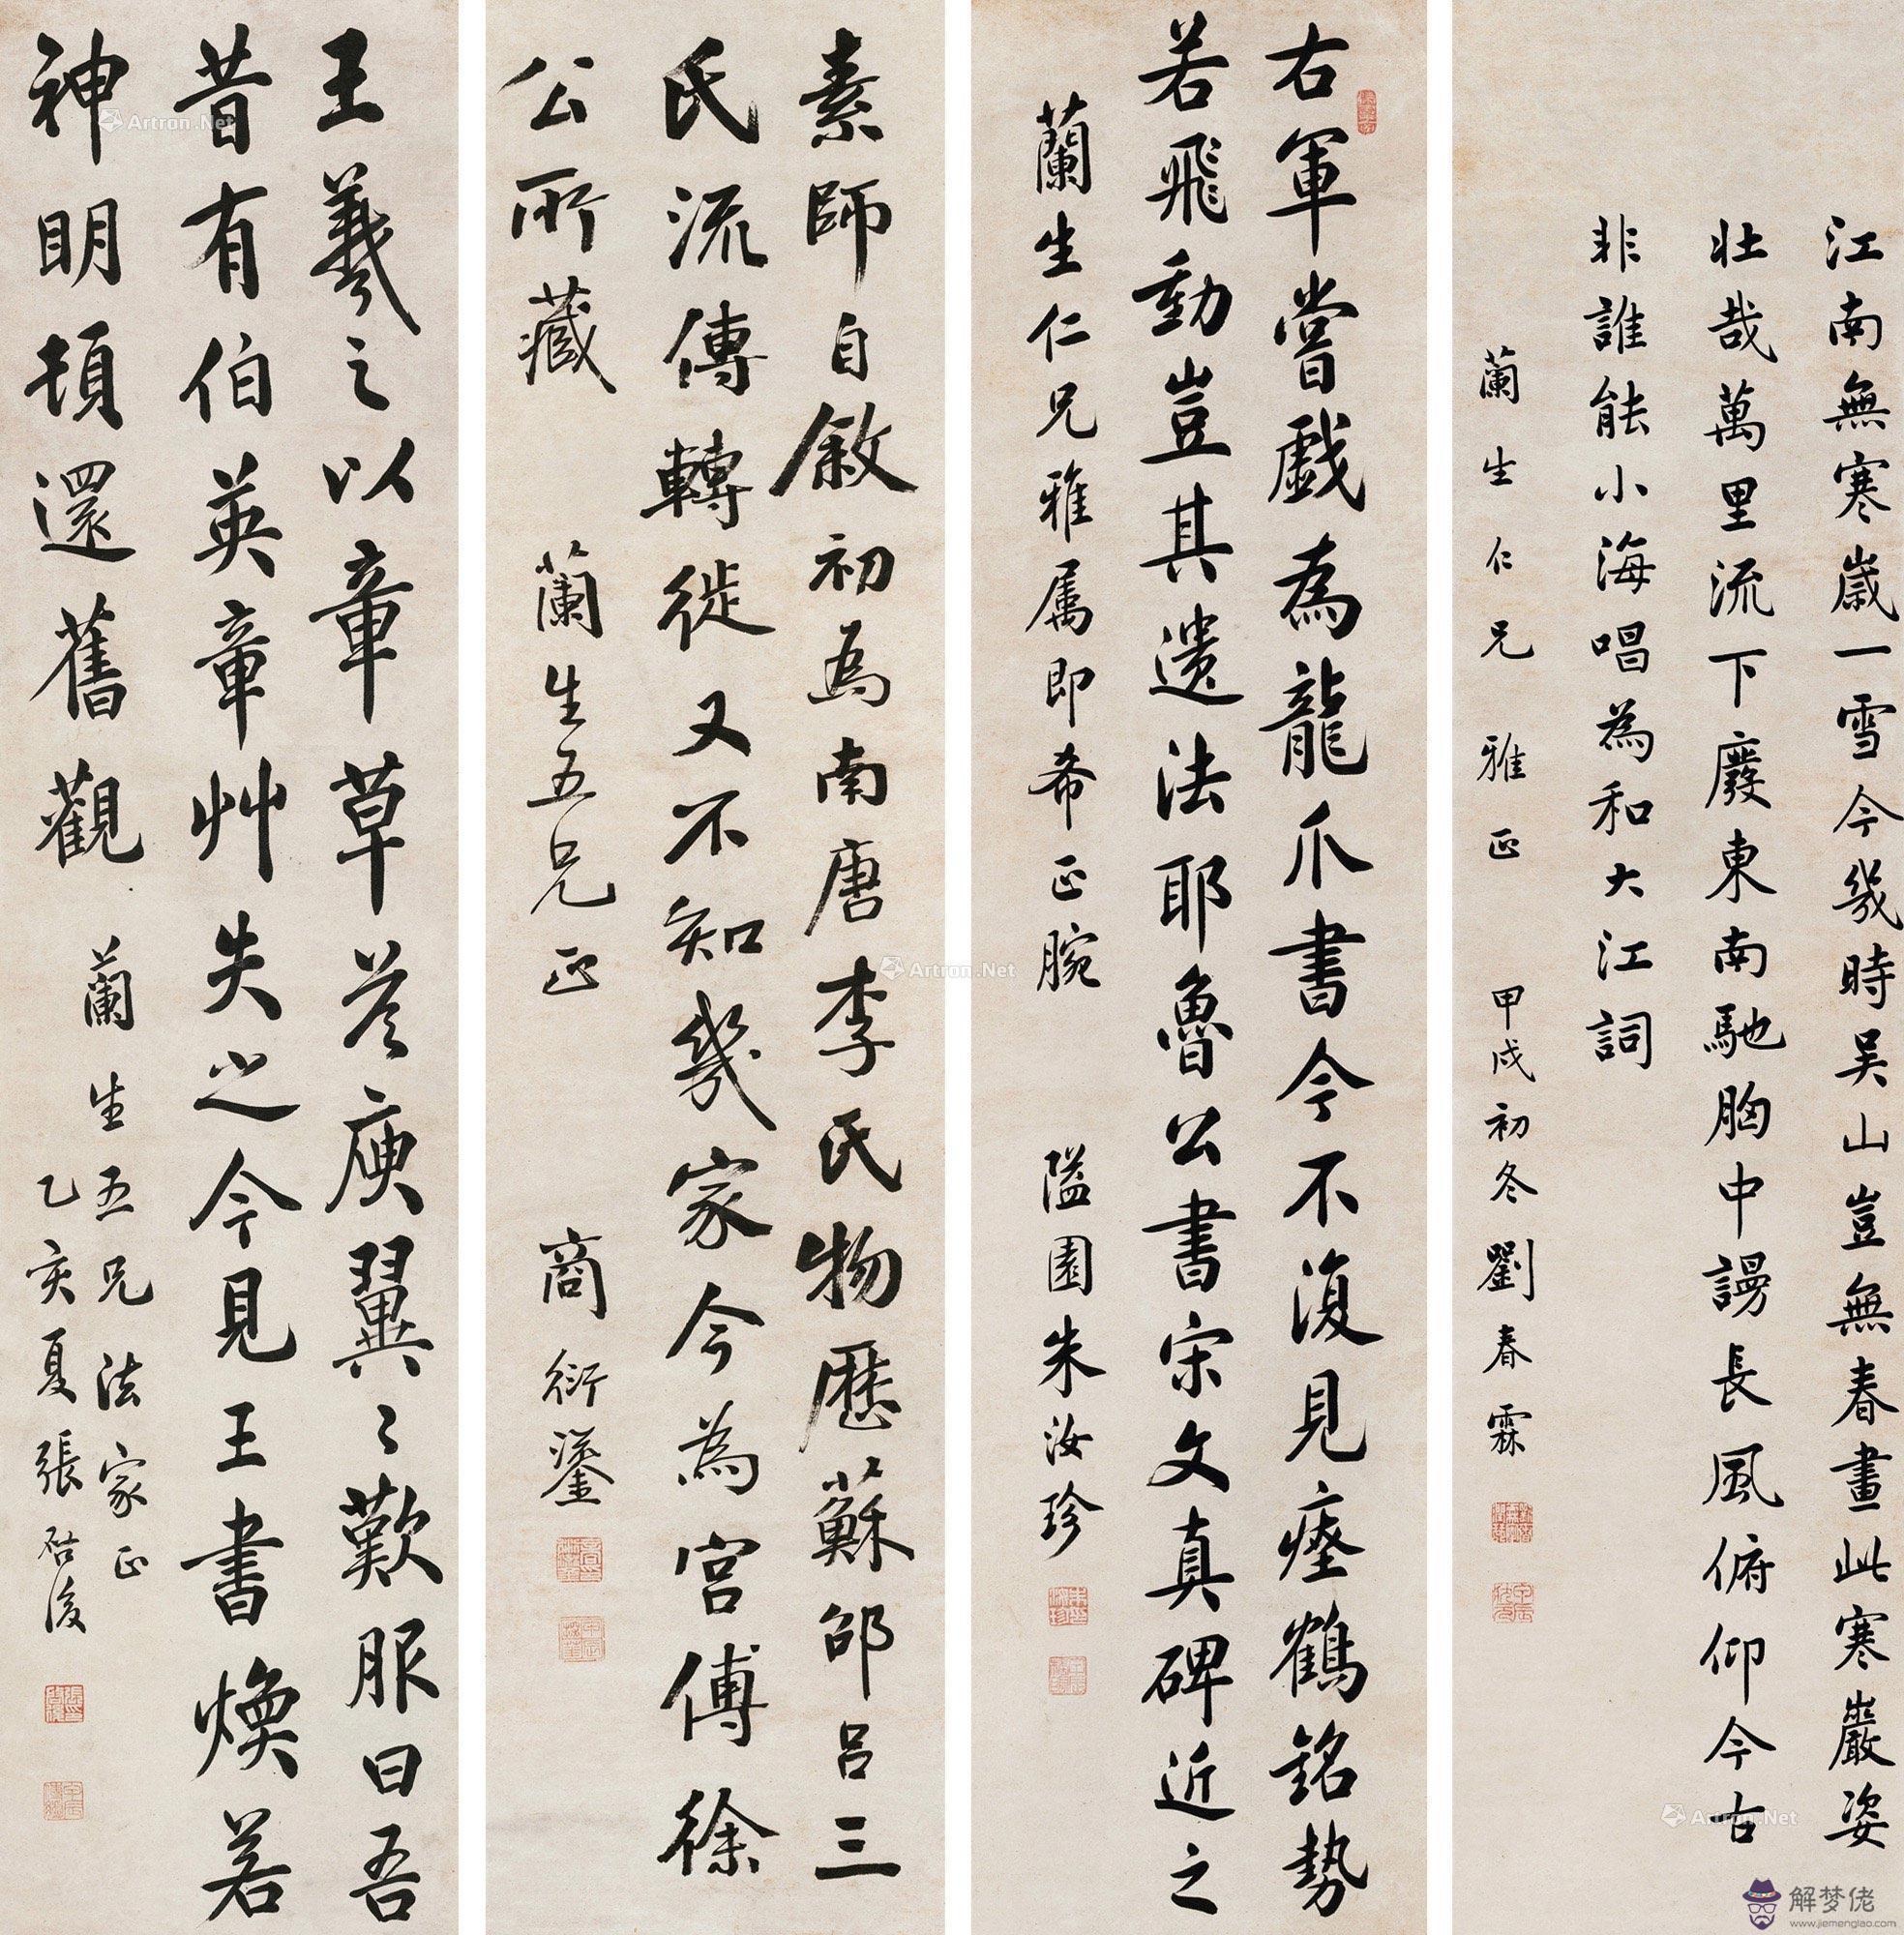 江南無寒歲一雪今幾時吴山豈無春畫此寒巖姿
壯哉萬里流下廢東南馳胸中謾長風俯仰今古
非誰能小海唱為和大江詞
蘭生仁兄雅正 甲戌初冬劉春霖
右軍嘗戲為龍爪書今不復見瘞鶴銘勢
若飛動豈其遺法耶魯公書宋文真碑近之
蘭生仁兄雅属即希正腕 隘園朱汝珍
素師自敘初為南唐李氏物歷蘇邵呂三
氏流傳轉徙又不知幾家今為宫傅徐
公所藏 蘭生五兄正 商衍鎏
王羲之以章草答庾翼翼歎服曰吾
昔有伯英章艸失之今見王書煥若
神明頓還舊觀 蘭生五兄法家正
乙亥夏張啓後
Artron.Net
Artron.Net
Artron.Net
解梦佬
www.jiemenglao.com